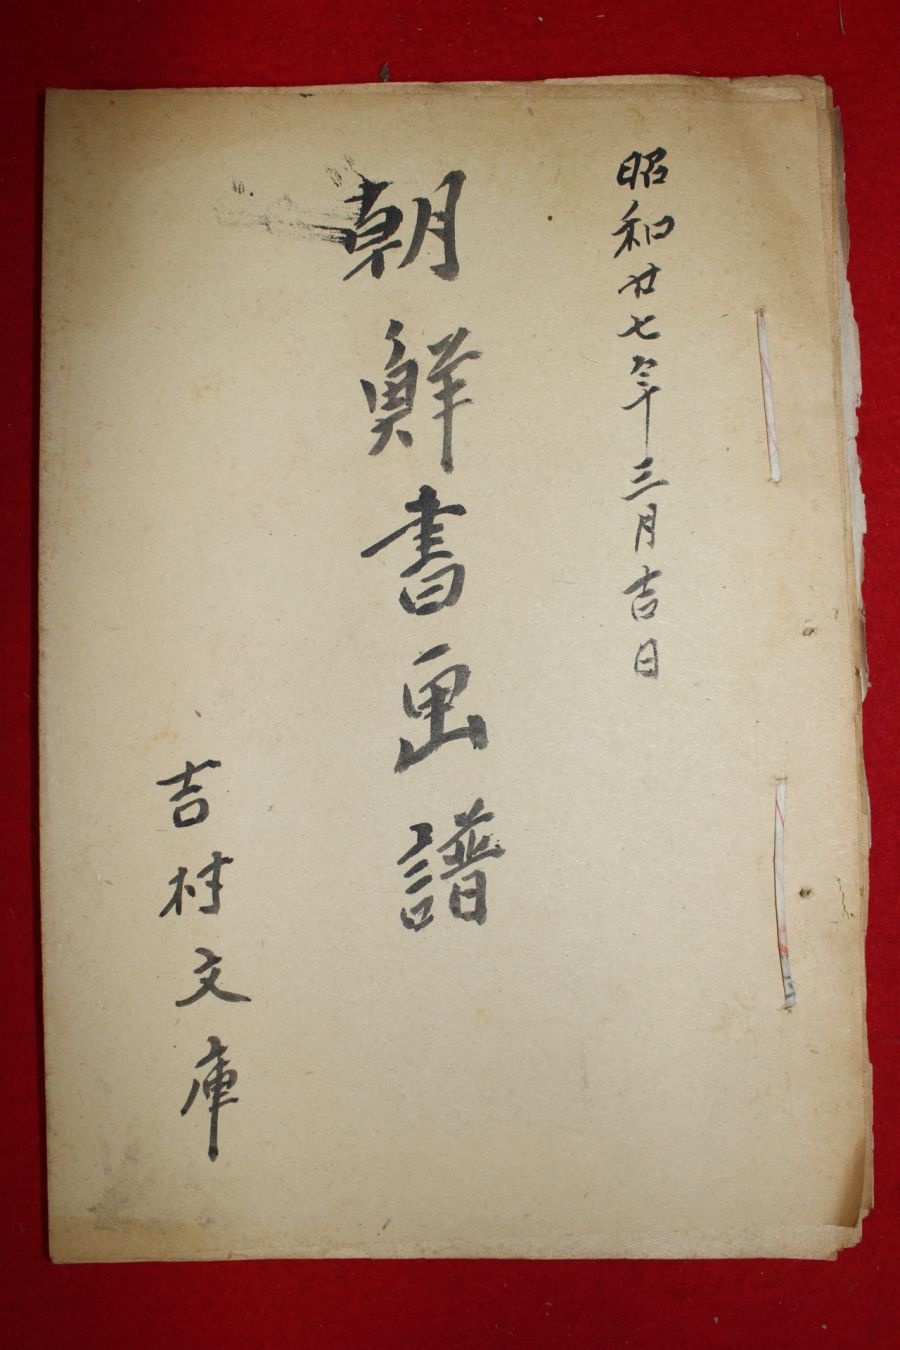 昭和廿七年三月吉日
朝鮮書画譜
吉村文庫